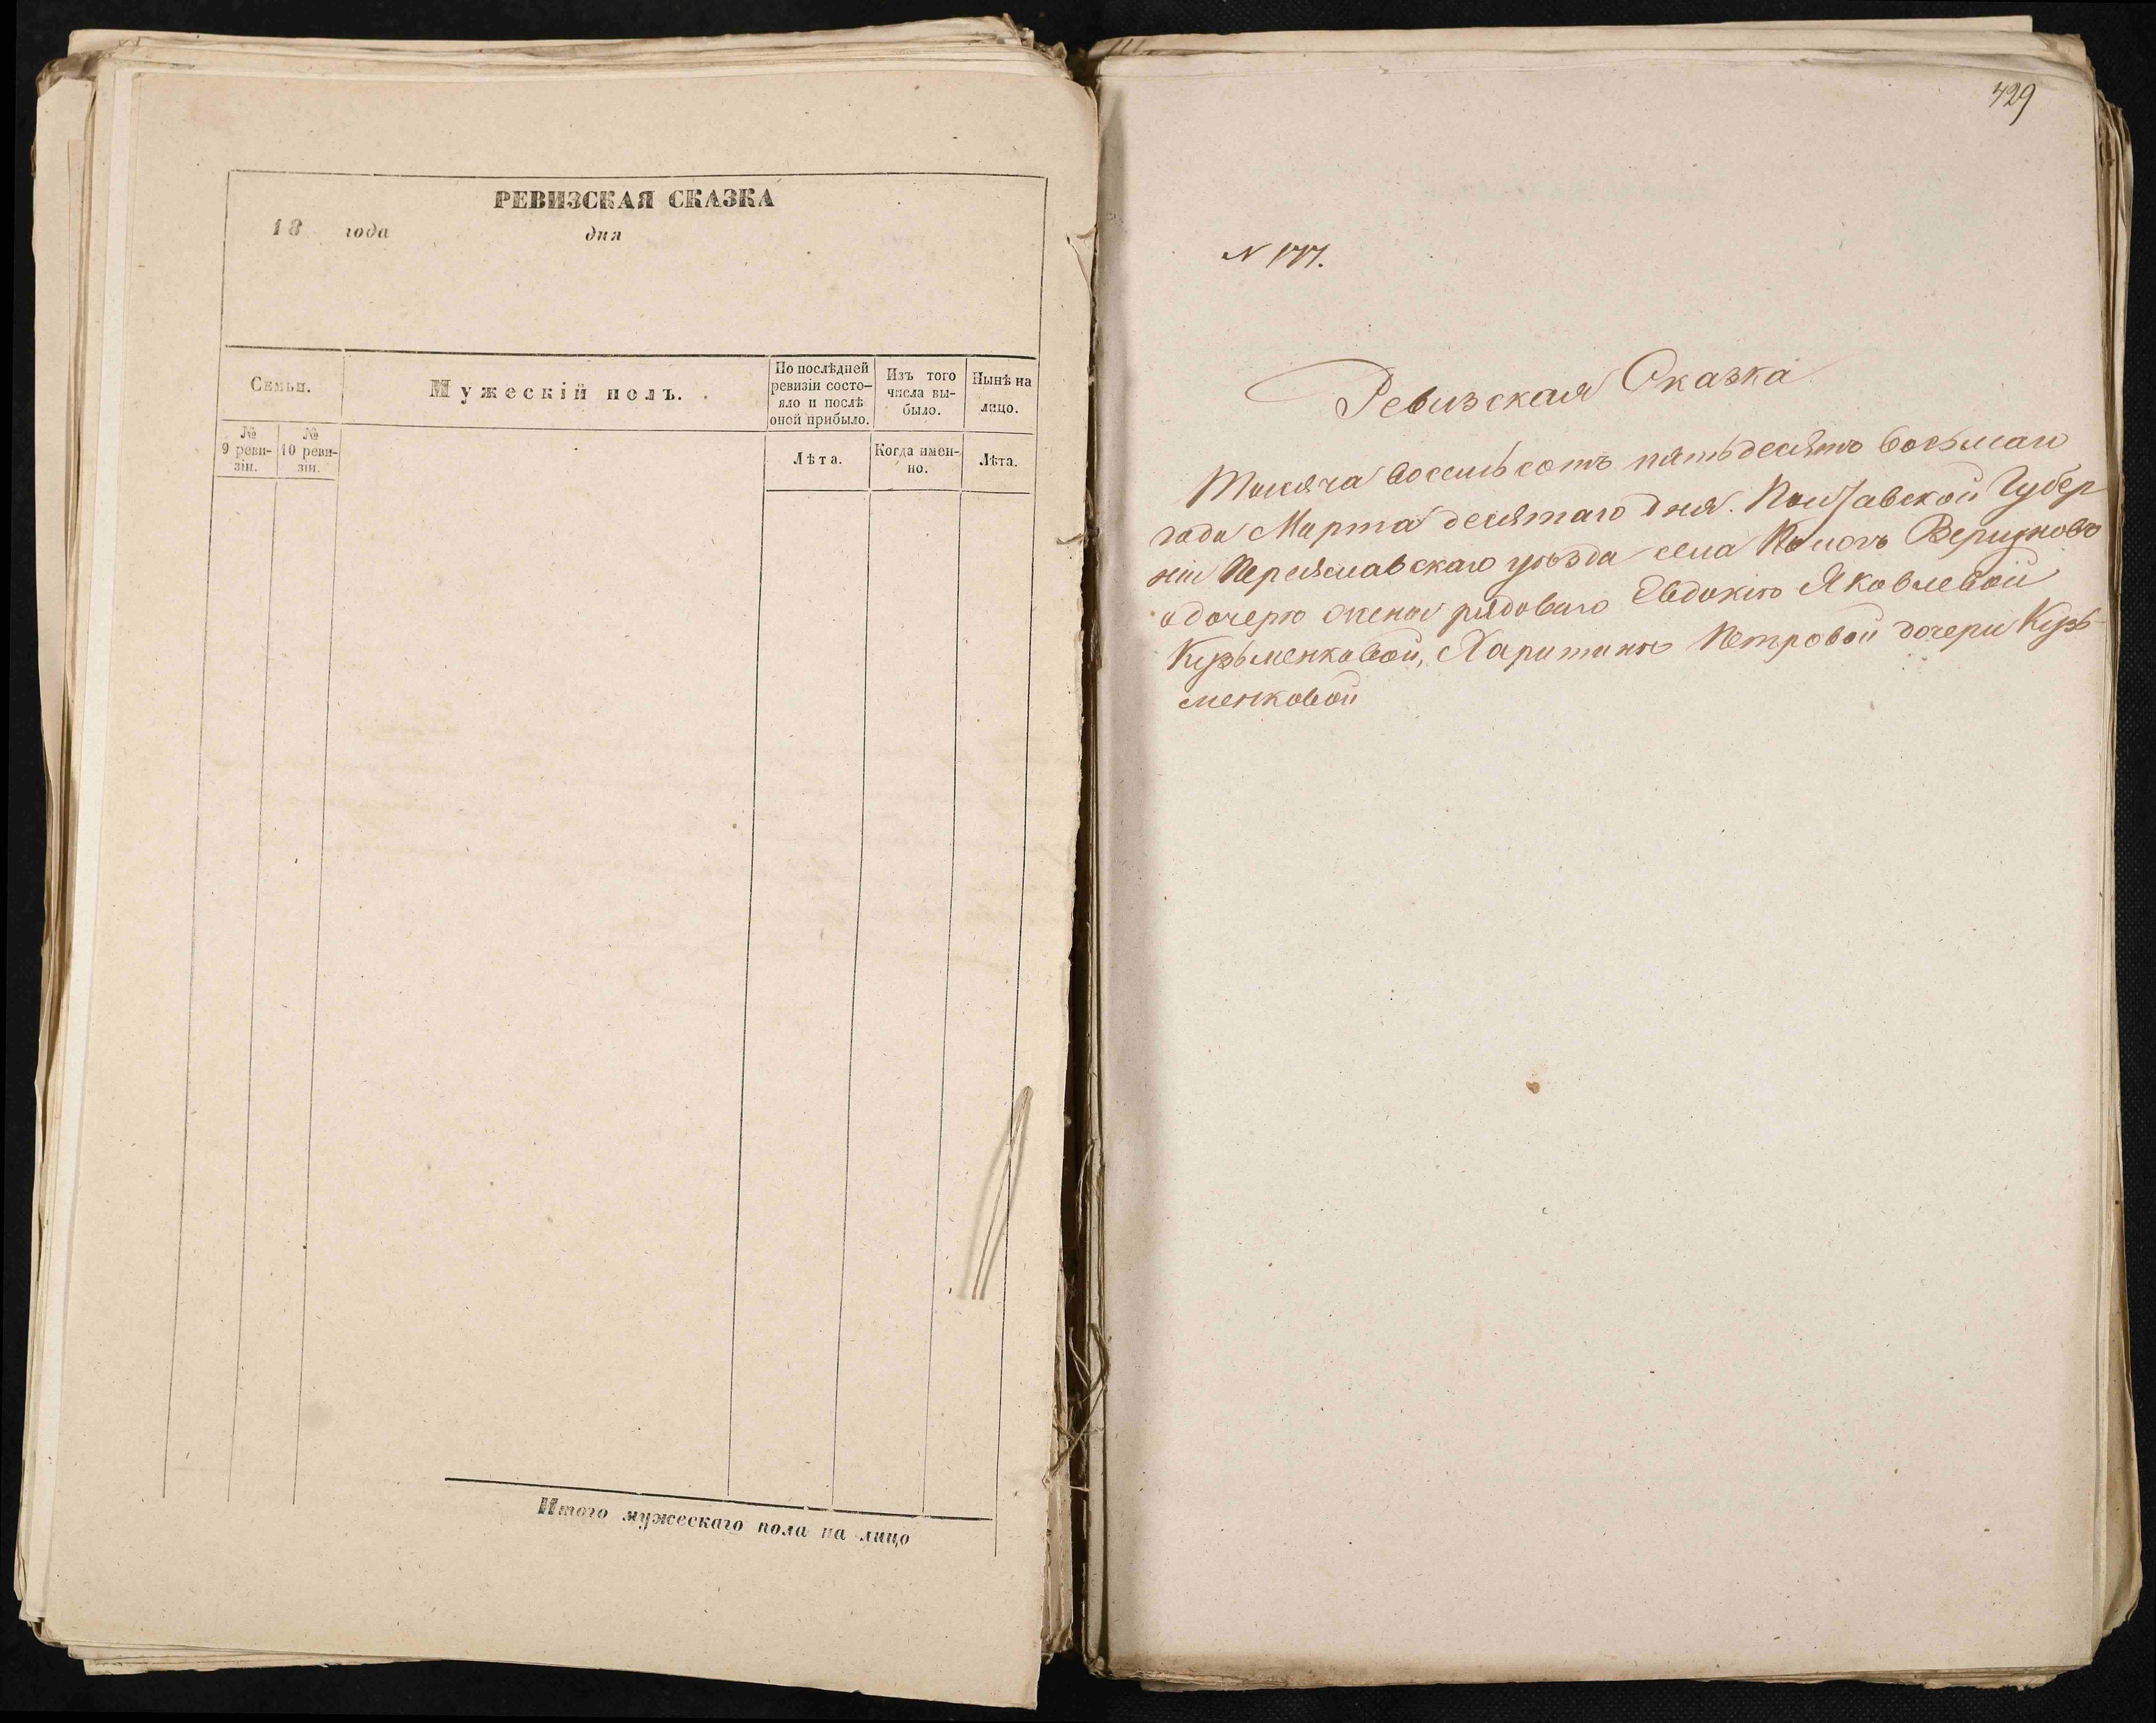 РЕВИЗСКАЯ СКАЗКА
18 года дня
Семьи.
Мужескій полъ.
По послѣдней ревизіи состо-
яло и послѣ оной прибыло.
Изъ того числа вы-
было.
Нынѣ на лицо.
№ 9 реви-
зіи.
№ 10 реви-
зіи.
Лѣта.
Когда имен-
но.
Лѣта.
Итого мужескаго пола на лицо
429
N 177.
Ревизская Сказка
Тысяча восемьсотъ пятьдесятъ восьмаго
года Марта десятаго дня. Полтавской Губер
ніи Переяславскаго уѣзда села
о дочерю жены рядоваго Евдокіи Яковлевой
Кузьменковой, Харитины Петровой дочери Кузь-
менковой